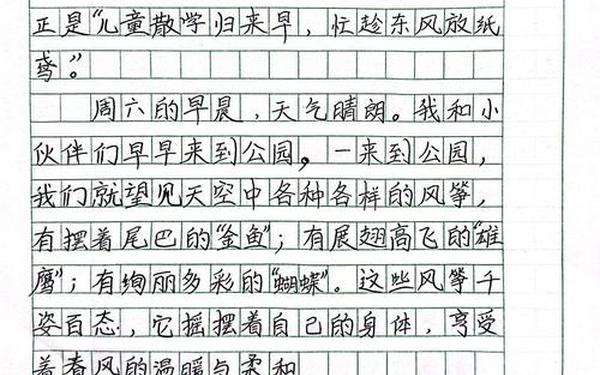 正是“儿童散学归来早，忙趁东风放纸
鸢”。
周六的早晨，天气晴朗。我和小
伙伴们早早来到公园。一来到公园，
我们就望见天空中各种各样的风筝，
有摆着尾巴的“金鱼”；有展翅高飞的“雄
鹰”；有绚丽多彩的“蝴蝶”。这些风筝千
姿百态，它摇摆着自己的身体，享受
着春风的温暖与柔和